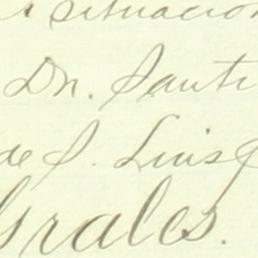 situacion
Dn. Santi
de S. Luis
Grales.